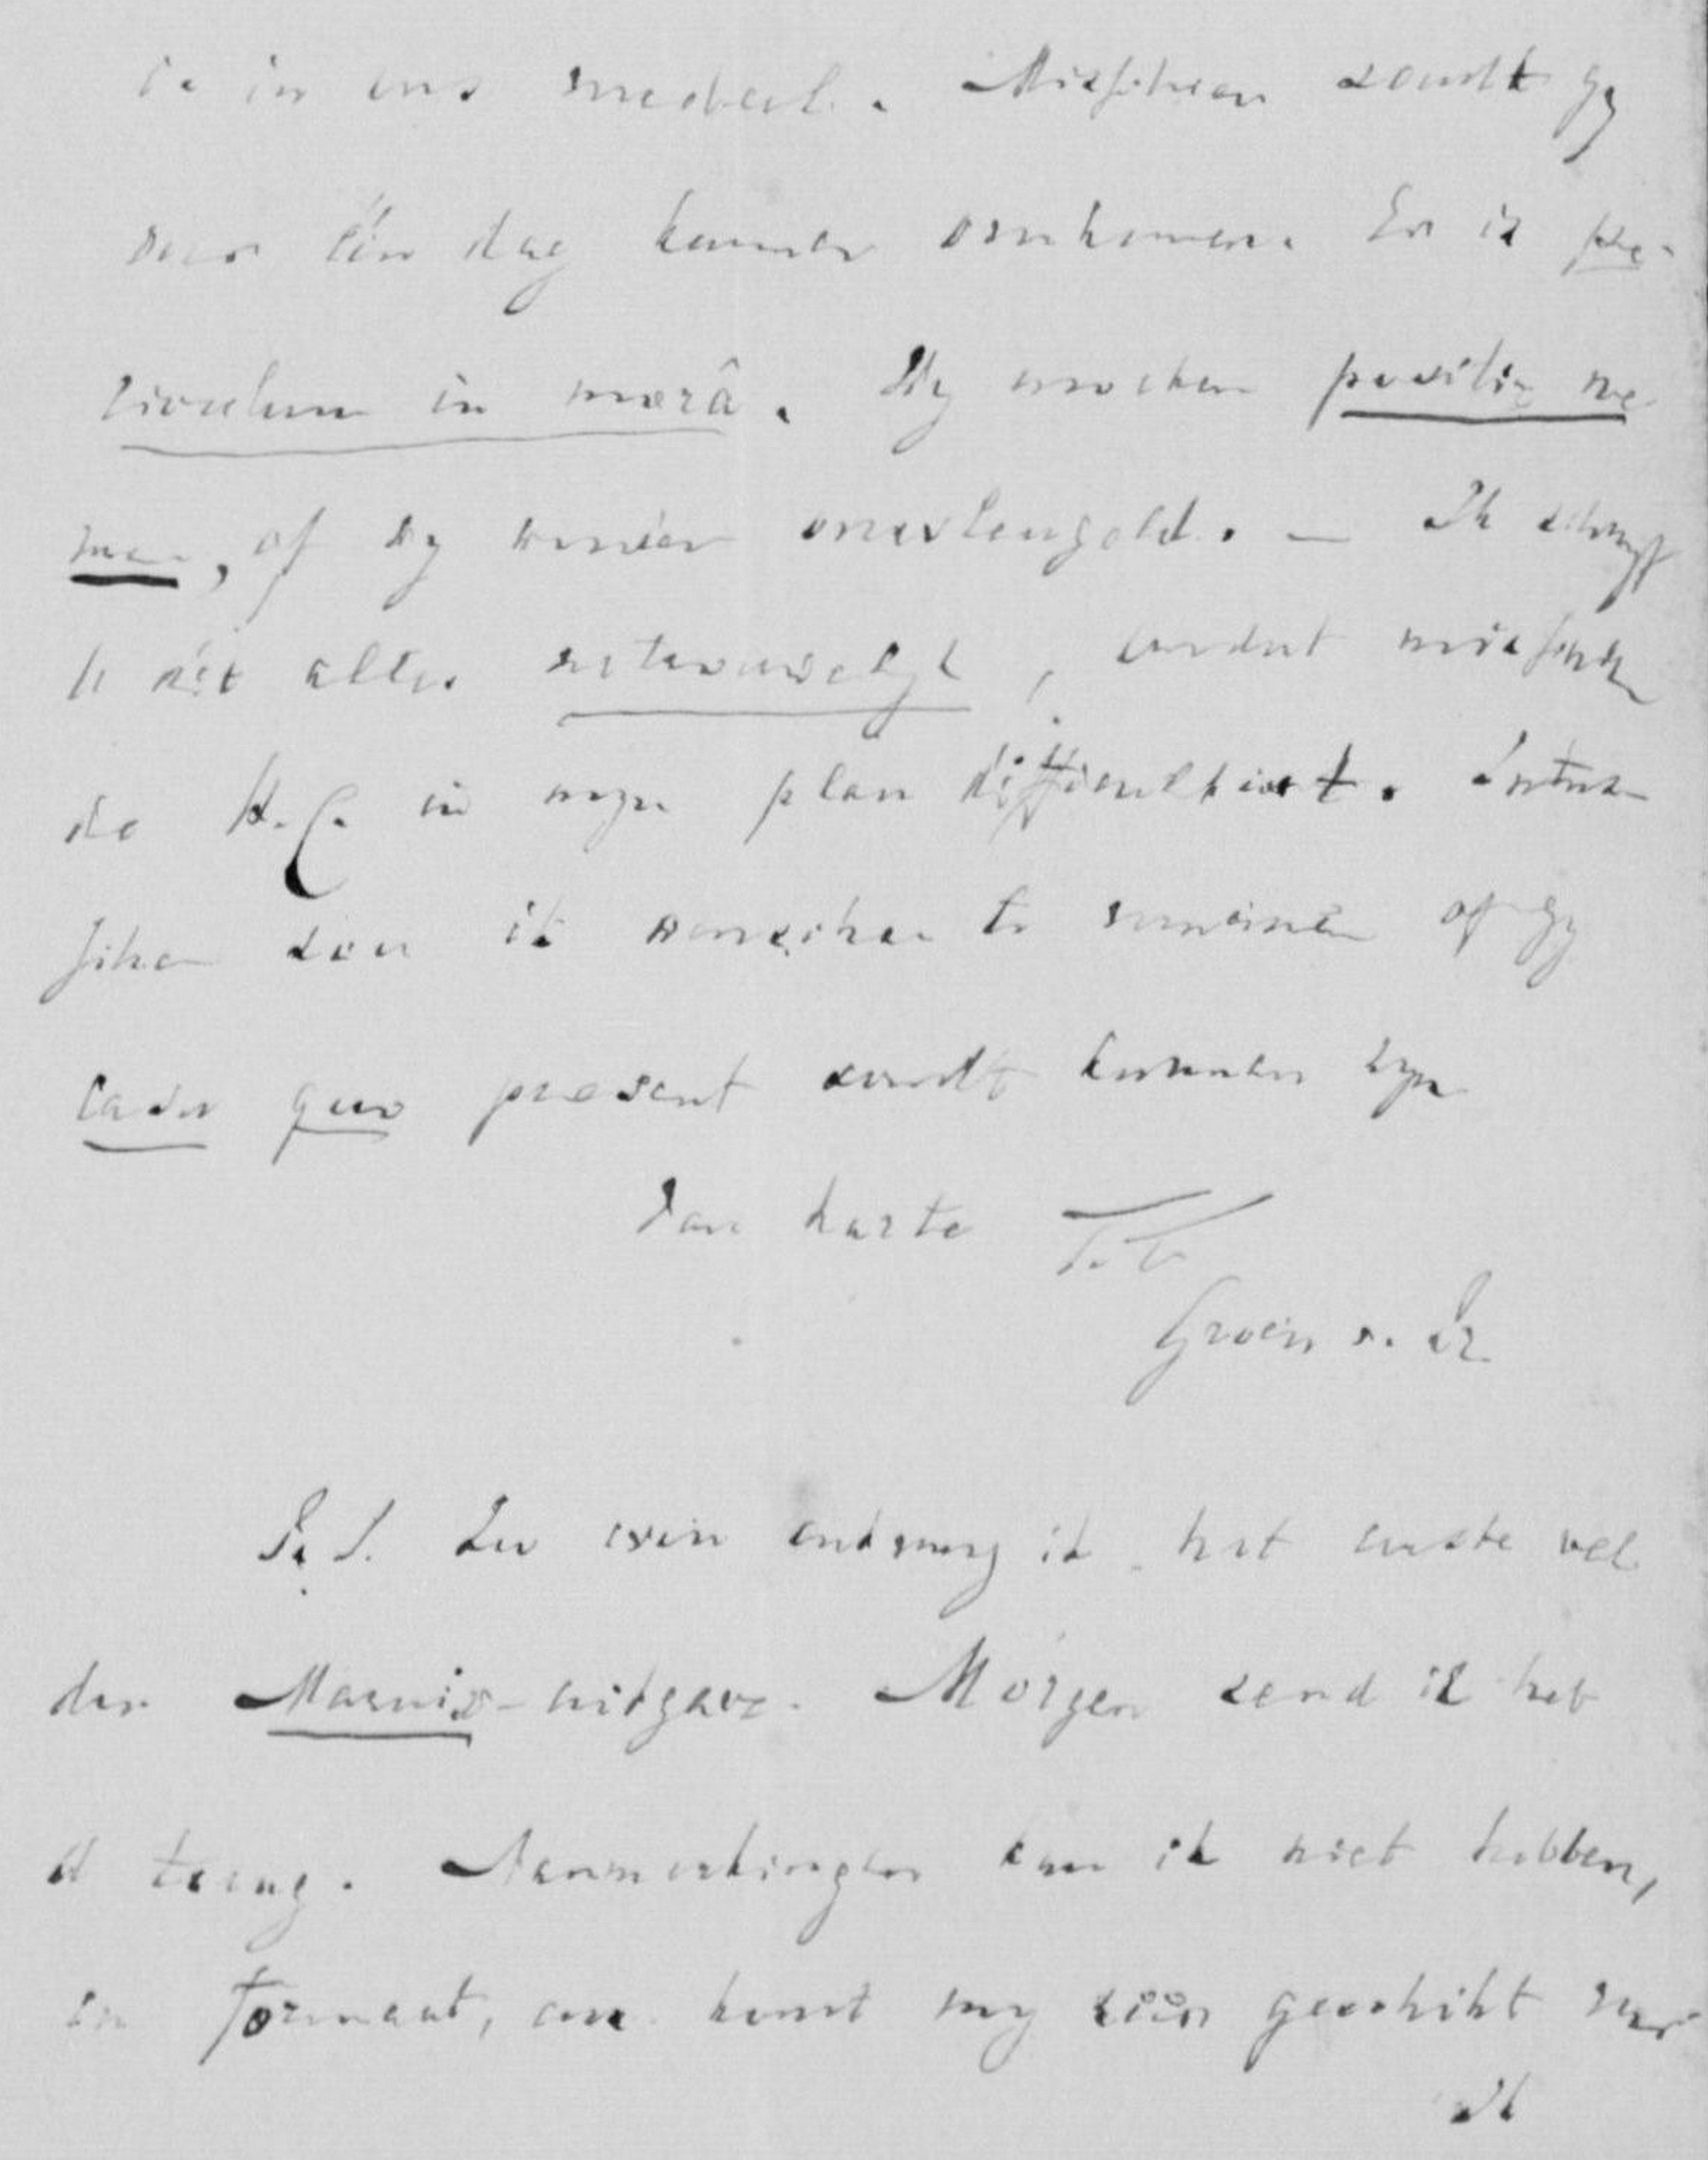 is in ons nadeel. Misschien zoudt gy
voor één dag kunnen overkomen. Er is pe-
riculum in morâ. Wy moeten positie ne-
men, of wy worden overvleugeld. — Ik schryf
U dit alles, omdat misschien
de H.C. in myn plan difficulteert. Intus-
schen zou ik wenschen te vernemen of gy
casu quo present zoudt kunnen zyn
Van harte T.T.
Groen v. Pr.
P.S. Zoo even ontvang ik het eerste vel
der Marnix-uitgave. Morgen zend ik het
U terug. Aanmerkingen kan ik niet hebben,
en formaat, enz. komt my zeer geschikt voor
Ik